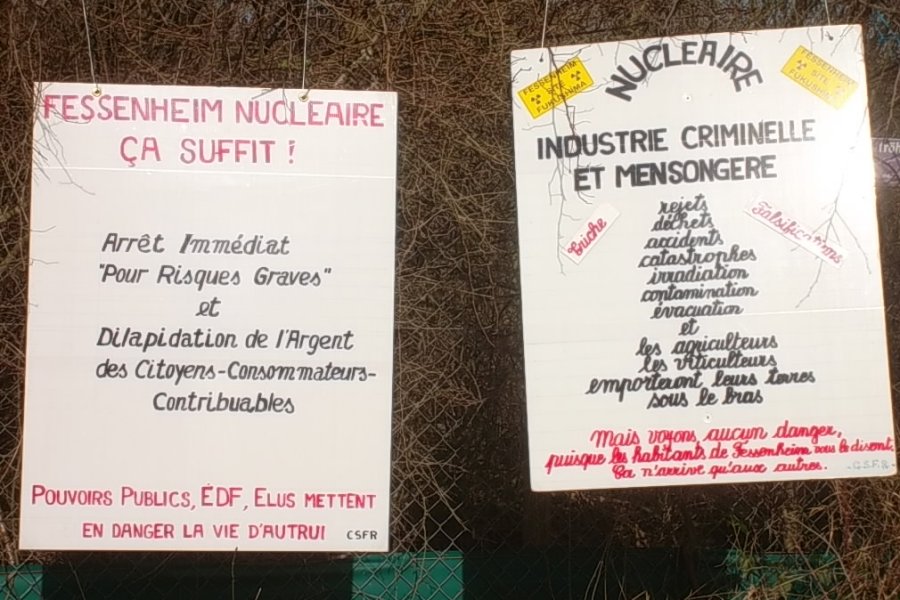 FESSENHEIM NUCLEAIRE
ÇA SUFFIT !
Arrêt Immédiat
"Pour Risques Graves"
et
Dilapidation de l'Argent
des Citoyens-Consommateurs-
Contribuables
POUVOIRS PUBLICS, ÉDF, ELUS METTENT
EN DANGER LA VIE D'AUTRUI
CSFR
FESSENHEIM
SITE
FUKUSHIMA
NUCLEAIRE
FESSENHEIM
SITE
FUKUSHIMA
INDUSTRIE CRIMINELLE
ET MENSONGERE
Triche
Falsifications
rejets
déchets
accidents
catastrophes
irradiation
contamination
évacuation
et
les agriculteurs
les viticulteurs
emporteront leurs terres
sous le bras
Mais voyons aucun danger,
puisque les habitants de Fessenheim vous le disent.
Ça n'arrive qu'aux autres.
-C.S.F.R-